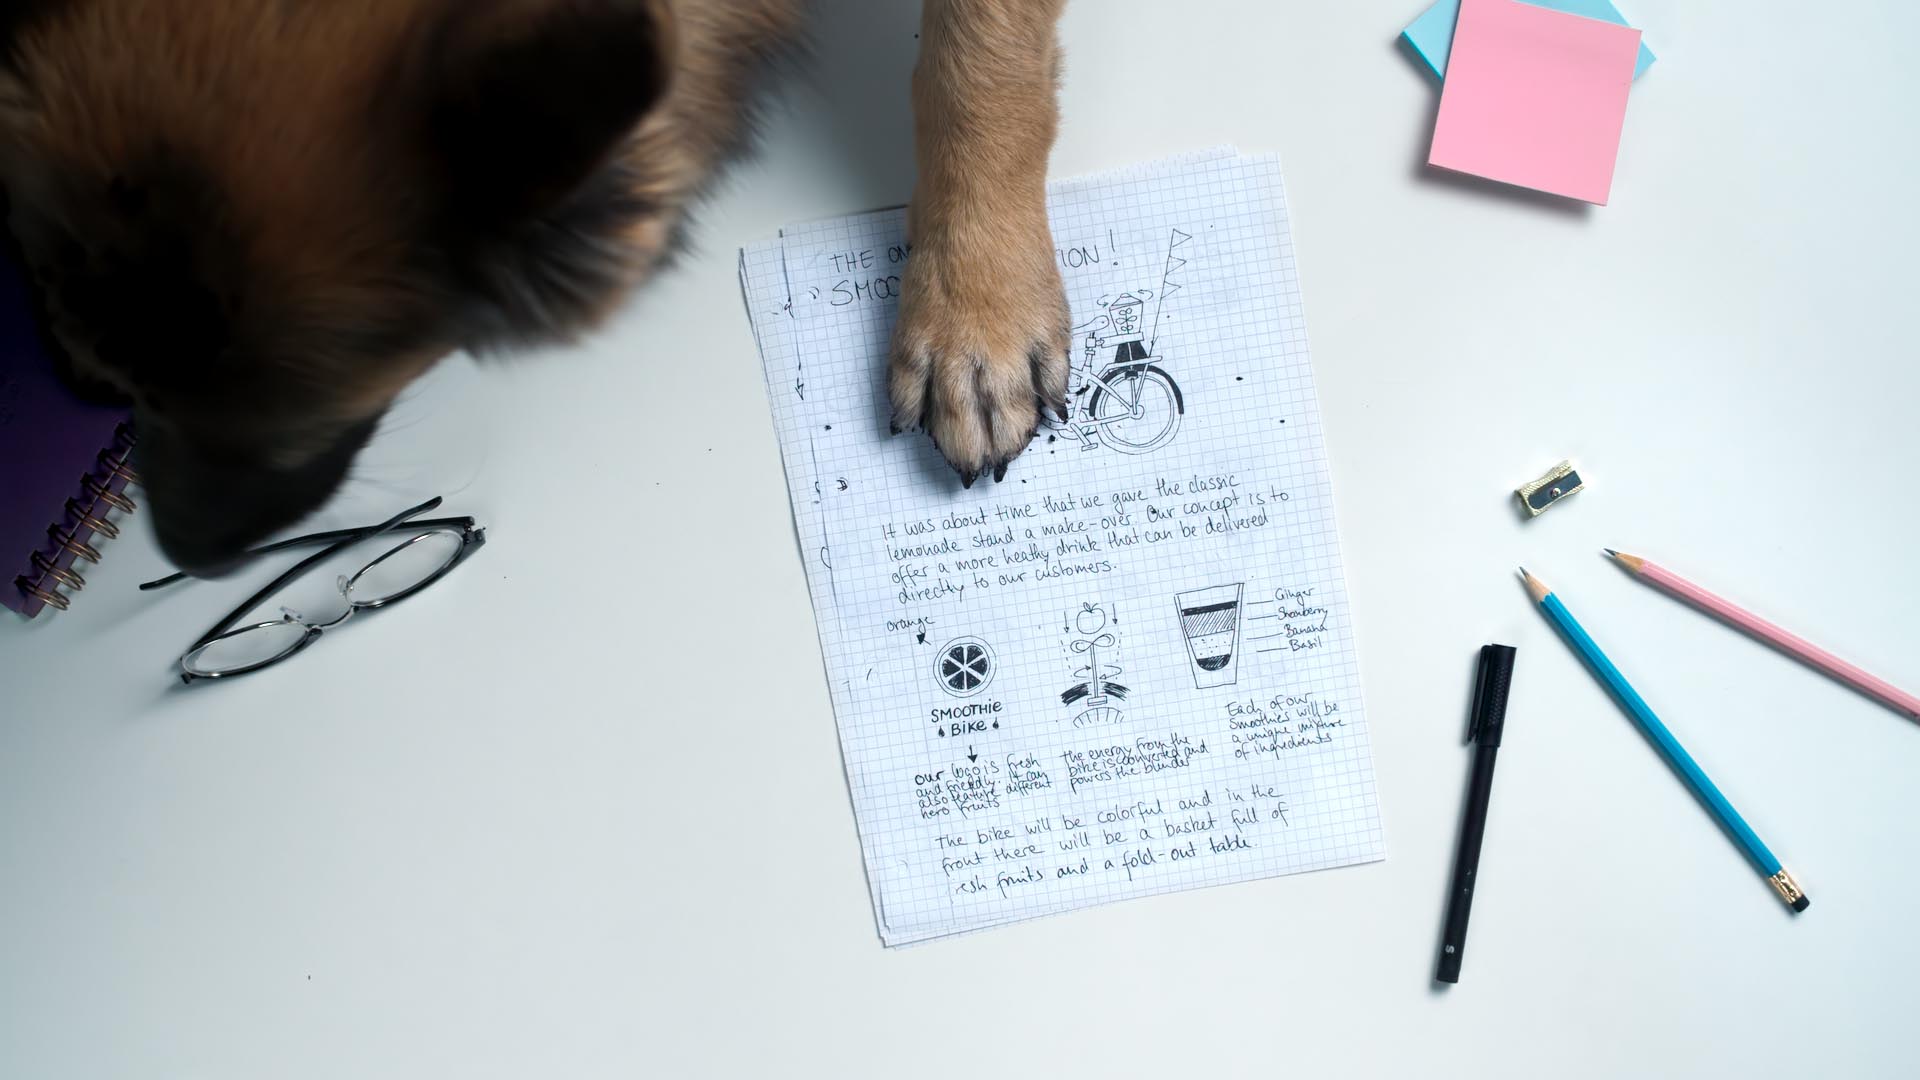 THE ON TION!
SMOO
It was about time that we gave the classic
lemonade stand a make-over. Our concept is to
offer a more heathy drink that can be delivered
directly to our customers.
orange
Ginger
Strawberry
Banana
Basil
SMOOTHiE
BiKE
our logo is fresh
and friendly. it can
also feature different
hero fruits
the energy from the
bike is converted and
powers the blender
Each of our
Smoothies will be
a unique mixture
of ingredients
The bike will be colorful and in the
front there will be a basket full of
resh fruits and a fold-out table.
S